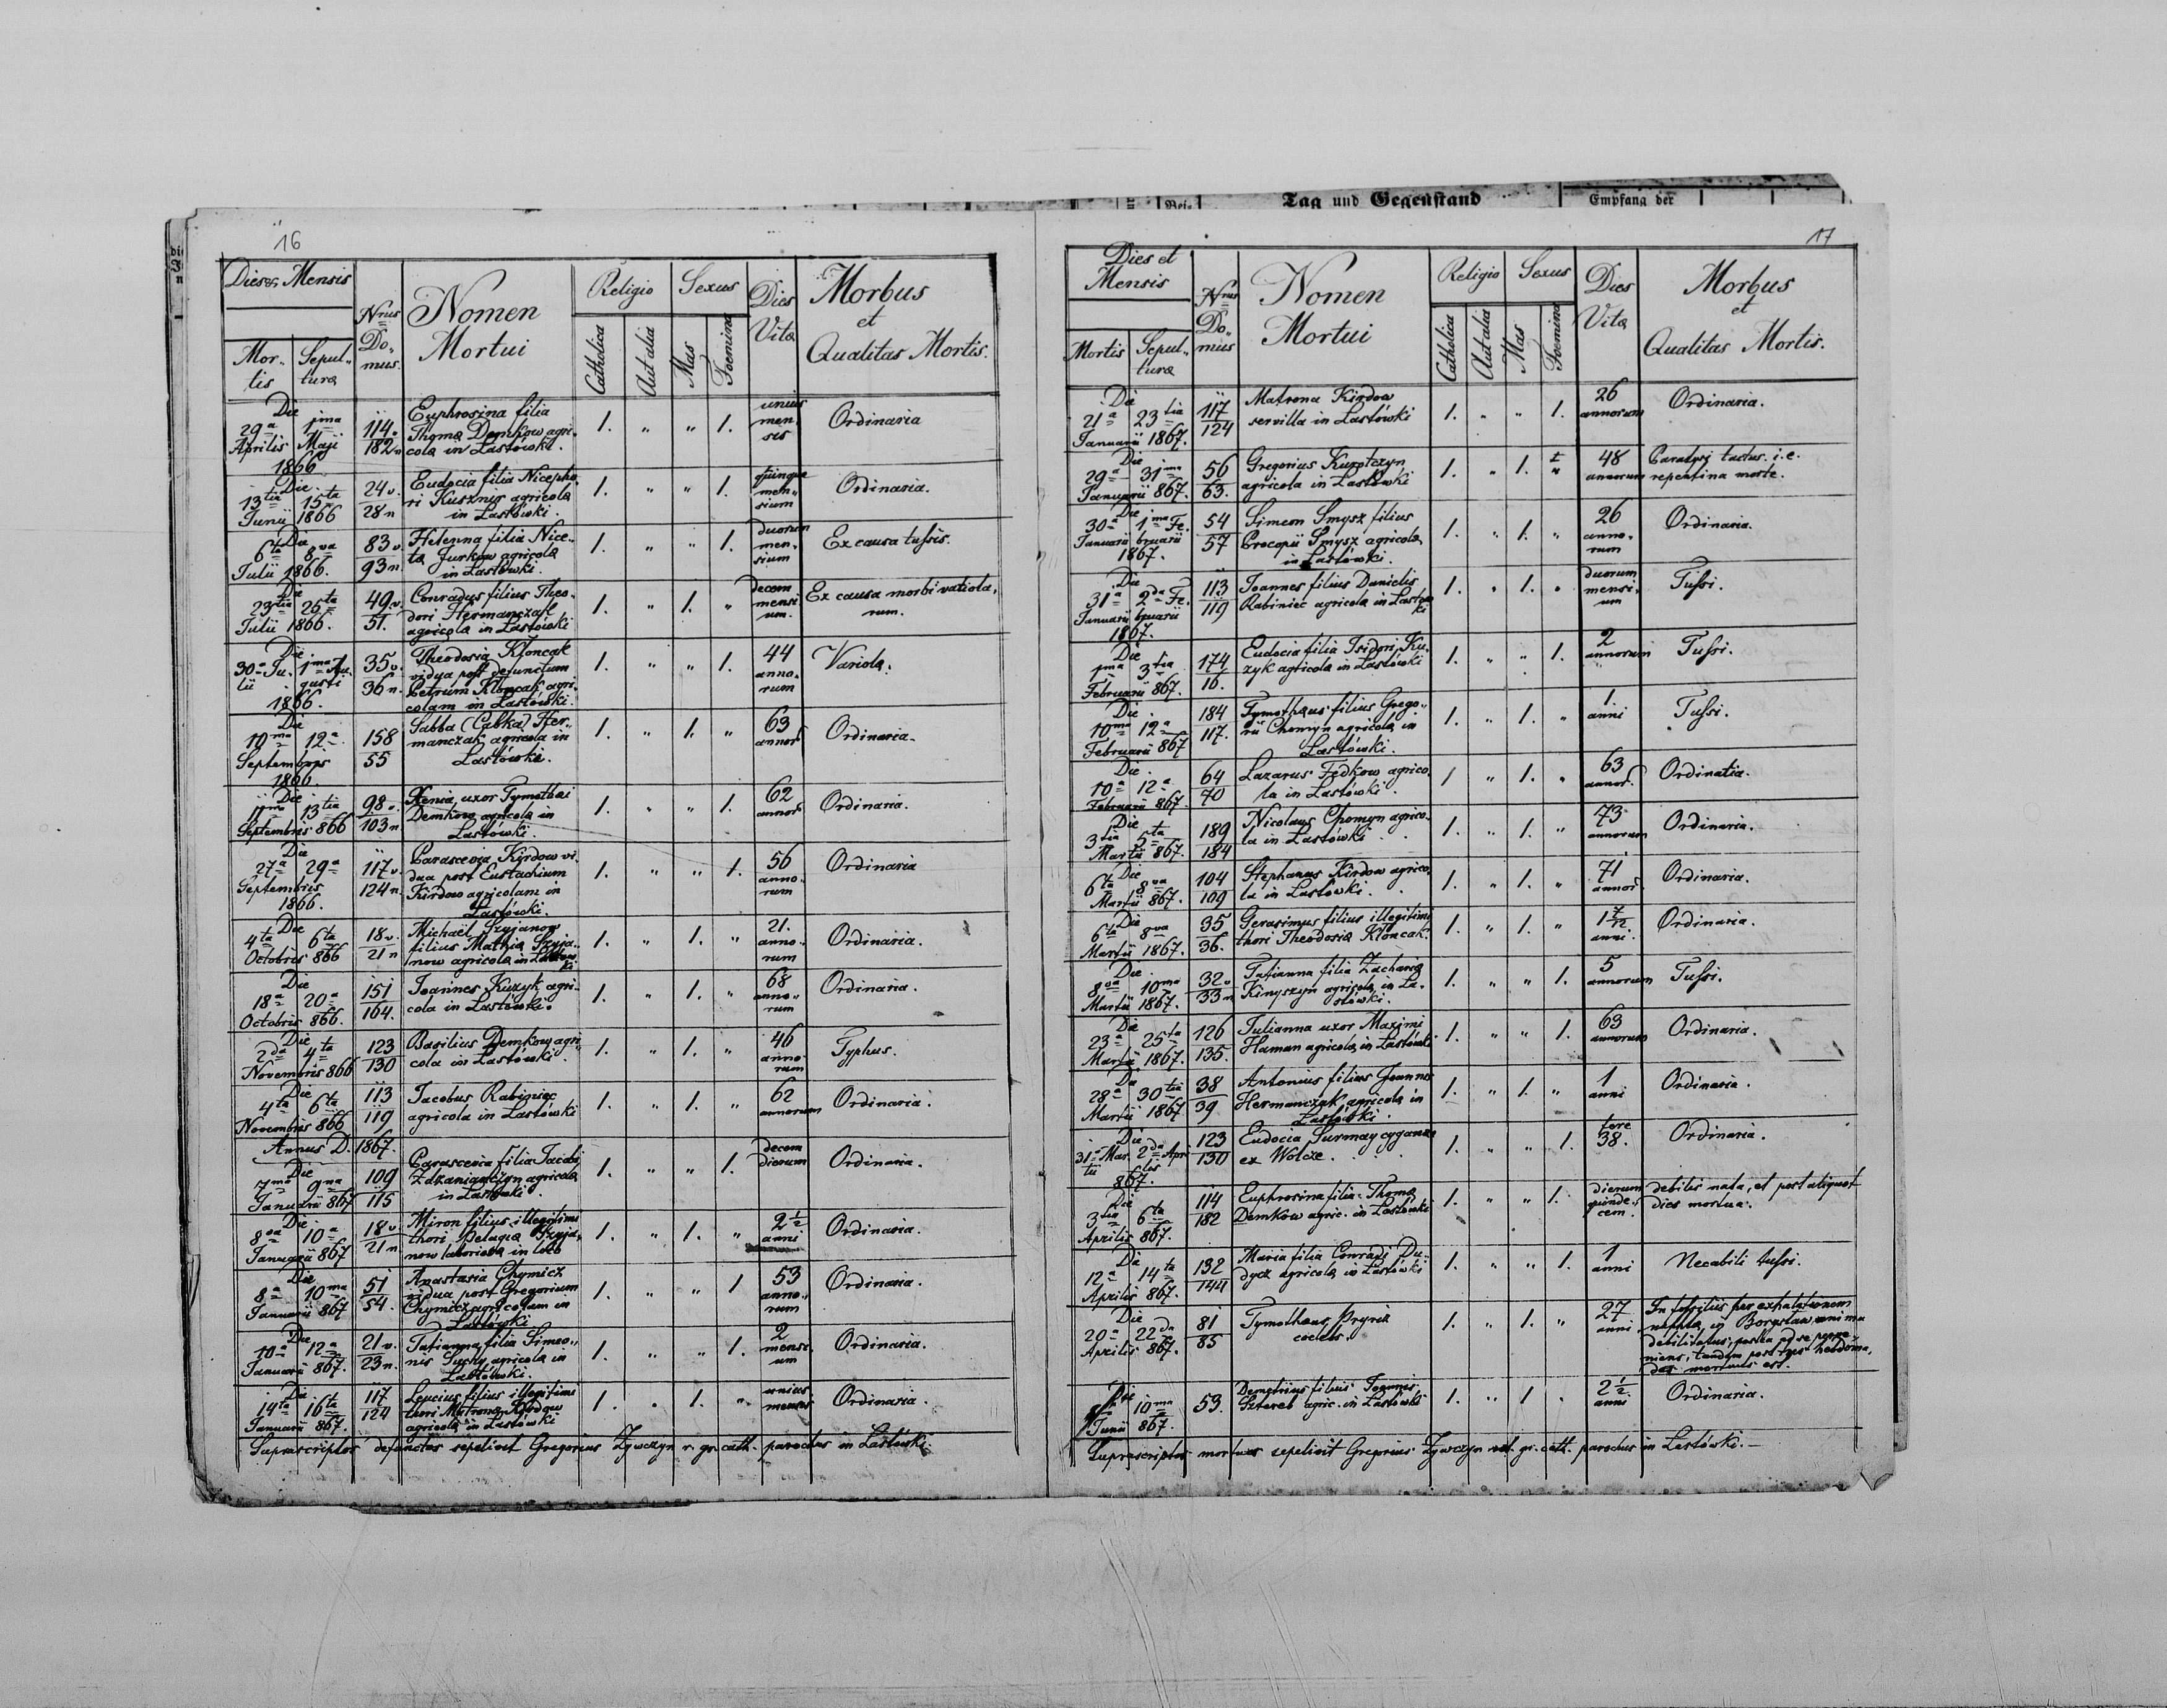 Tag und Gegenstand
Empfang der
16
Dies & Mensis
Mortis
Sepulturæ
Nrus Domus.
Nomen Mortui
Religio
Catholica
Aut alia
Sexus
Mas
Foemina
Dies Vitæ
Morbus et Qualitas Mortis.
Die 29a Aprilis 1ma Maji 1866
114. 182n
Euphrosina filia
Thomæ Demkow agri-
colæ in Lastówki.
1. " " 1.
unius mensis
Ordinaria
Die 13tia 15ta Junii 1866
24v. 28n
Eudocia filia Nicepho
ri Kusznir agricolæ
in Lastówki.
1. " " 1.
quinque mensium
Ordinaria.
Die 6ta 8va Julii 1866.
83v. 93n.
Helenna filia Nice-
tæ Jurkow agricolæ
in Lastówki.
1. " " 1.
duorum mensium
Ex causa tussis.
Die 23tia 25ta Julii 1866.
49v. 51.
Conradus filius Theo-
dori Hermanczak
agricolæ in Lastówki
1. " 1. "
decem mensium.
Ex causa morbi variola-
rum.
Die 30a Julii 1ma Augusti 1866.
35v. 36n.
Theodosia Kloncak
vidua post defunctum
Petrum Kloncak agri-
colam in Lastówki.
1. " " 1.
44 annorum
Variola.
Die 10ma 12a Septembris 1866
158 55
Sabba (Cabka) Her-
manczak agricola in
Lastówki.
1. " 1. "
63 annor
Ordinaria.
Die 11ma 13tia Septembris 866
98v. 103n
Xenia, uxor Tymothei
Demkow agricolæ in
Lastówki.
1. " " 1.
62 annor
Ordinaria.
Die 27a 29a Septembris 1866.
117v. 124n.
Parascevia Kirdow vi-
dua post Eustachium
Kirdow agricolam in
Lastówki.
1. " " 1.
56 annorum
Ordinaria
Die 4ta 6ta Octobris 866
18v. 21n
Michaël Szyjanow
filius Mathiæ Szyja-
now agricolæ in Lastowki
1. " 1. "
21. annorum
Ordinaria.
Die 18a 20a Octobris 866.
151 164.
Joannes Kuzyk agri-
cola in Lastówki.
1. " 1. "
68 annorum
Ordinaria.
Die 2da 4ta Novembris 866
123 130
Basilius Demkow agri-
cola in Lastówki.
1. " 1. "
46 annorum
Typhus.
Die 4ta 6ta Novembris 866
113 119
Jacobus Rabiniec
agricola in Lastówki
1. " 1. "
62 annorum
Ordinaria.
Annus D. 1867.
Die 7ma 9na Januarii 867
109 115
Parascevia filia Jacobi
agricolæ
in Lastowki.
1. " " 1.
decem dierum
Ordinaria.
Die 8va 10a Januarii 867
18v 21n
Miron filius illegitimi
thori Pelagiæ Szyja-
now in loco
1. " 1. "
2 1/2 anni
Ordinaria.
Die 8a 10ma Januarii 867
51 54.
Anastasia Chymicz
vidua post Gregorium
Chymicz agricolam in
Lastówki
1. " " 1
53 annorum
Ordinaria.
Die 10a 12a Januarii 867.
21v. 23n.
Tatianna filia Simeo-
nis Suchy agricolæ in
Lastówki.
1. " " 1.
2 mensium
Ordinaria.
Die 14ta 16ta Januarii 867.
117 124
Leucius filius illegitimi
thori Matronæ Kirdow
agricolæ in Lastówki
1. " 1. "
unius mensis
Ordinaria.
Suprascriptos defunctos sepelivit Gregorius Zywczyn r. gr. cath. parochus in Lastówki.
17
Dies et Mensis
Mortis
Sepulturæ
Nrus Domus
Nomen Mortui
Religio
Catholica
Aut alia
Sexus
Mas
Foemina
Dies Vitæ
Morbus et Qualitas Mortis.
Die 21a 23tia Januarii 1867.
117 124
Matrona Kirdow
servilla in Lastówki
1. " " 1.
26 annorum
Ordinaria.
Die 29a 31ma Januarii 867.
56 63.
Gregorius
agricola in Lastówki
1. " 1. "
48 annorum
Paralysi tactus. i.e.
repentina morte.
Die 30a Januarii 1ma Februarii 1867.
54 57
Simeon Smysz filius
Procopii Smysz agricolæ
in Lastówki.
1. " 1. "
26 annorum
Ordinaria.
Die 31a Januarii 2da Februarii 1867.
113 119
Joannes filius Danielis
Rabiniec agricolæ in Lastowki
1. " 1. "
duorum mensium
Tussi.
Die 1ma 3tia Februarii 867.
174 16.
Eudocia filia Isidori Ku-
zyk agricolæ in Lastówki
1. " " 1.
2 annorum
Tussi.
Die 10ma 12a Februarii 867
184 117.
Tymotheus filius Grego-
rii Chomyn agricolæ in
Lastówki.
1. " 1. "
1. anni
Tussi.
Die 10a 12a Februarii 867
64 70
Lazarus Fedkow agrico-
la in Lastówki.
1 " 1. "
63 annor
Ordinatia.
Die 3tia 5ta Martii 867.
189 184
Nicolaus Chomyn agrico-
la in Lastówki
1. " 1. "
73 annorum
Ordinaria.
Die 6ta 8va Martii 867.
104 109
Stephanus Kirdow agrico-
la in Lastówki.
1. " 1. "
71 annor.
Ordinaria.
Die 6ta 8va Martii 1867.
35 36.
Gerasimus filius illegitimi
thori Theodosiæ Kloncak.
1. " 1. "
1 7/12 anni.
Ordinaria.
Die 8va 10ma Martii 1867.
32v 33n
Tatianna filia Zachariæ
Kinyszyn agricolæ in La-
stówki.
1. " " 1.
5 annorum
Tussi.
Die 23a 25ta Martii 1867.
126 135.
Julianna uxor Maximi
Haman agricolæ in Lastówki
1. " " 1.
63 annorum
Ordinaria.
Die 28a 30tia Martii 1867
38 39
Antonius filius Joannis
Hermanczak agricolæ in
Lastówki.
1. " 1. "
1 anni
Ordinaria.
Die 31a Martii 2da Aprilis 867.
123 130
Eudocia Surmay cygana
ex Wolcze.
1. " " 1.
fere 38.
Ordinaria.
Die 3tia 6ta Aprilis 867.
114 182
Euphrosina filia Thomæ
Demkow agric. in Lastówki
1. " " 1.
dierum quindecem.
debilis nata, et post aliquot
dies mortua.
Die 12a 14ta Aprilis 867.
132 144
Maria filia Conradi Du-
dycz agricolæ in Lastówki
1. " " 1.
1 anni
Necabili tussi.
Die 20a 22da Aprilis 867.
81 85
Tymotheus Pryriz
coelebs.
1. " 1. "
27 anni
In fossiliis per exhalationem
naphtæ, in Boryslaw
debilitatus, postea ad se
niens, tandem post tres hebdoma-
das mortuus est.
Die 10ma Junii 867.
53.
Demetrius filius Joannis
Sztereb agric. in Lastówki
1. " 1 "
2 1/2 anni.
Ordinaria.
Suprascriptos mortuos sepelivit Gregorius Zywczyn gr. cath. parochus in Lastówki.